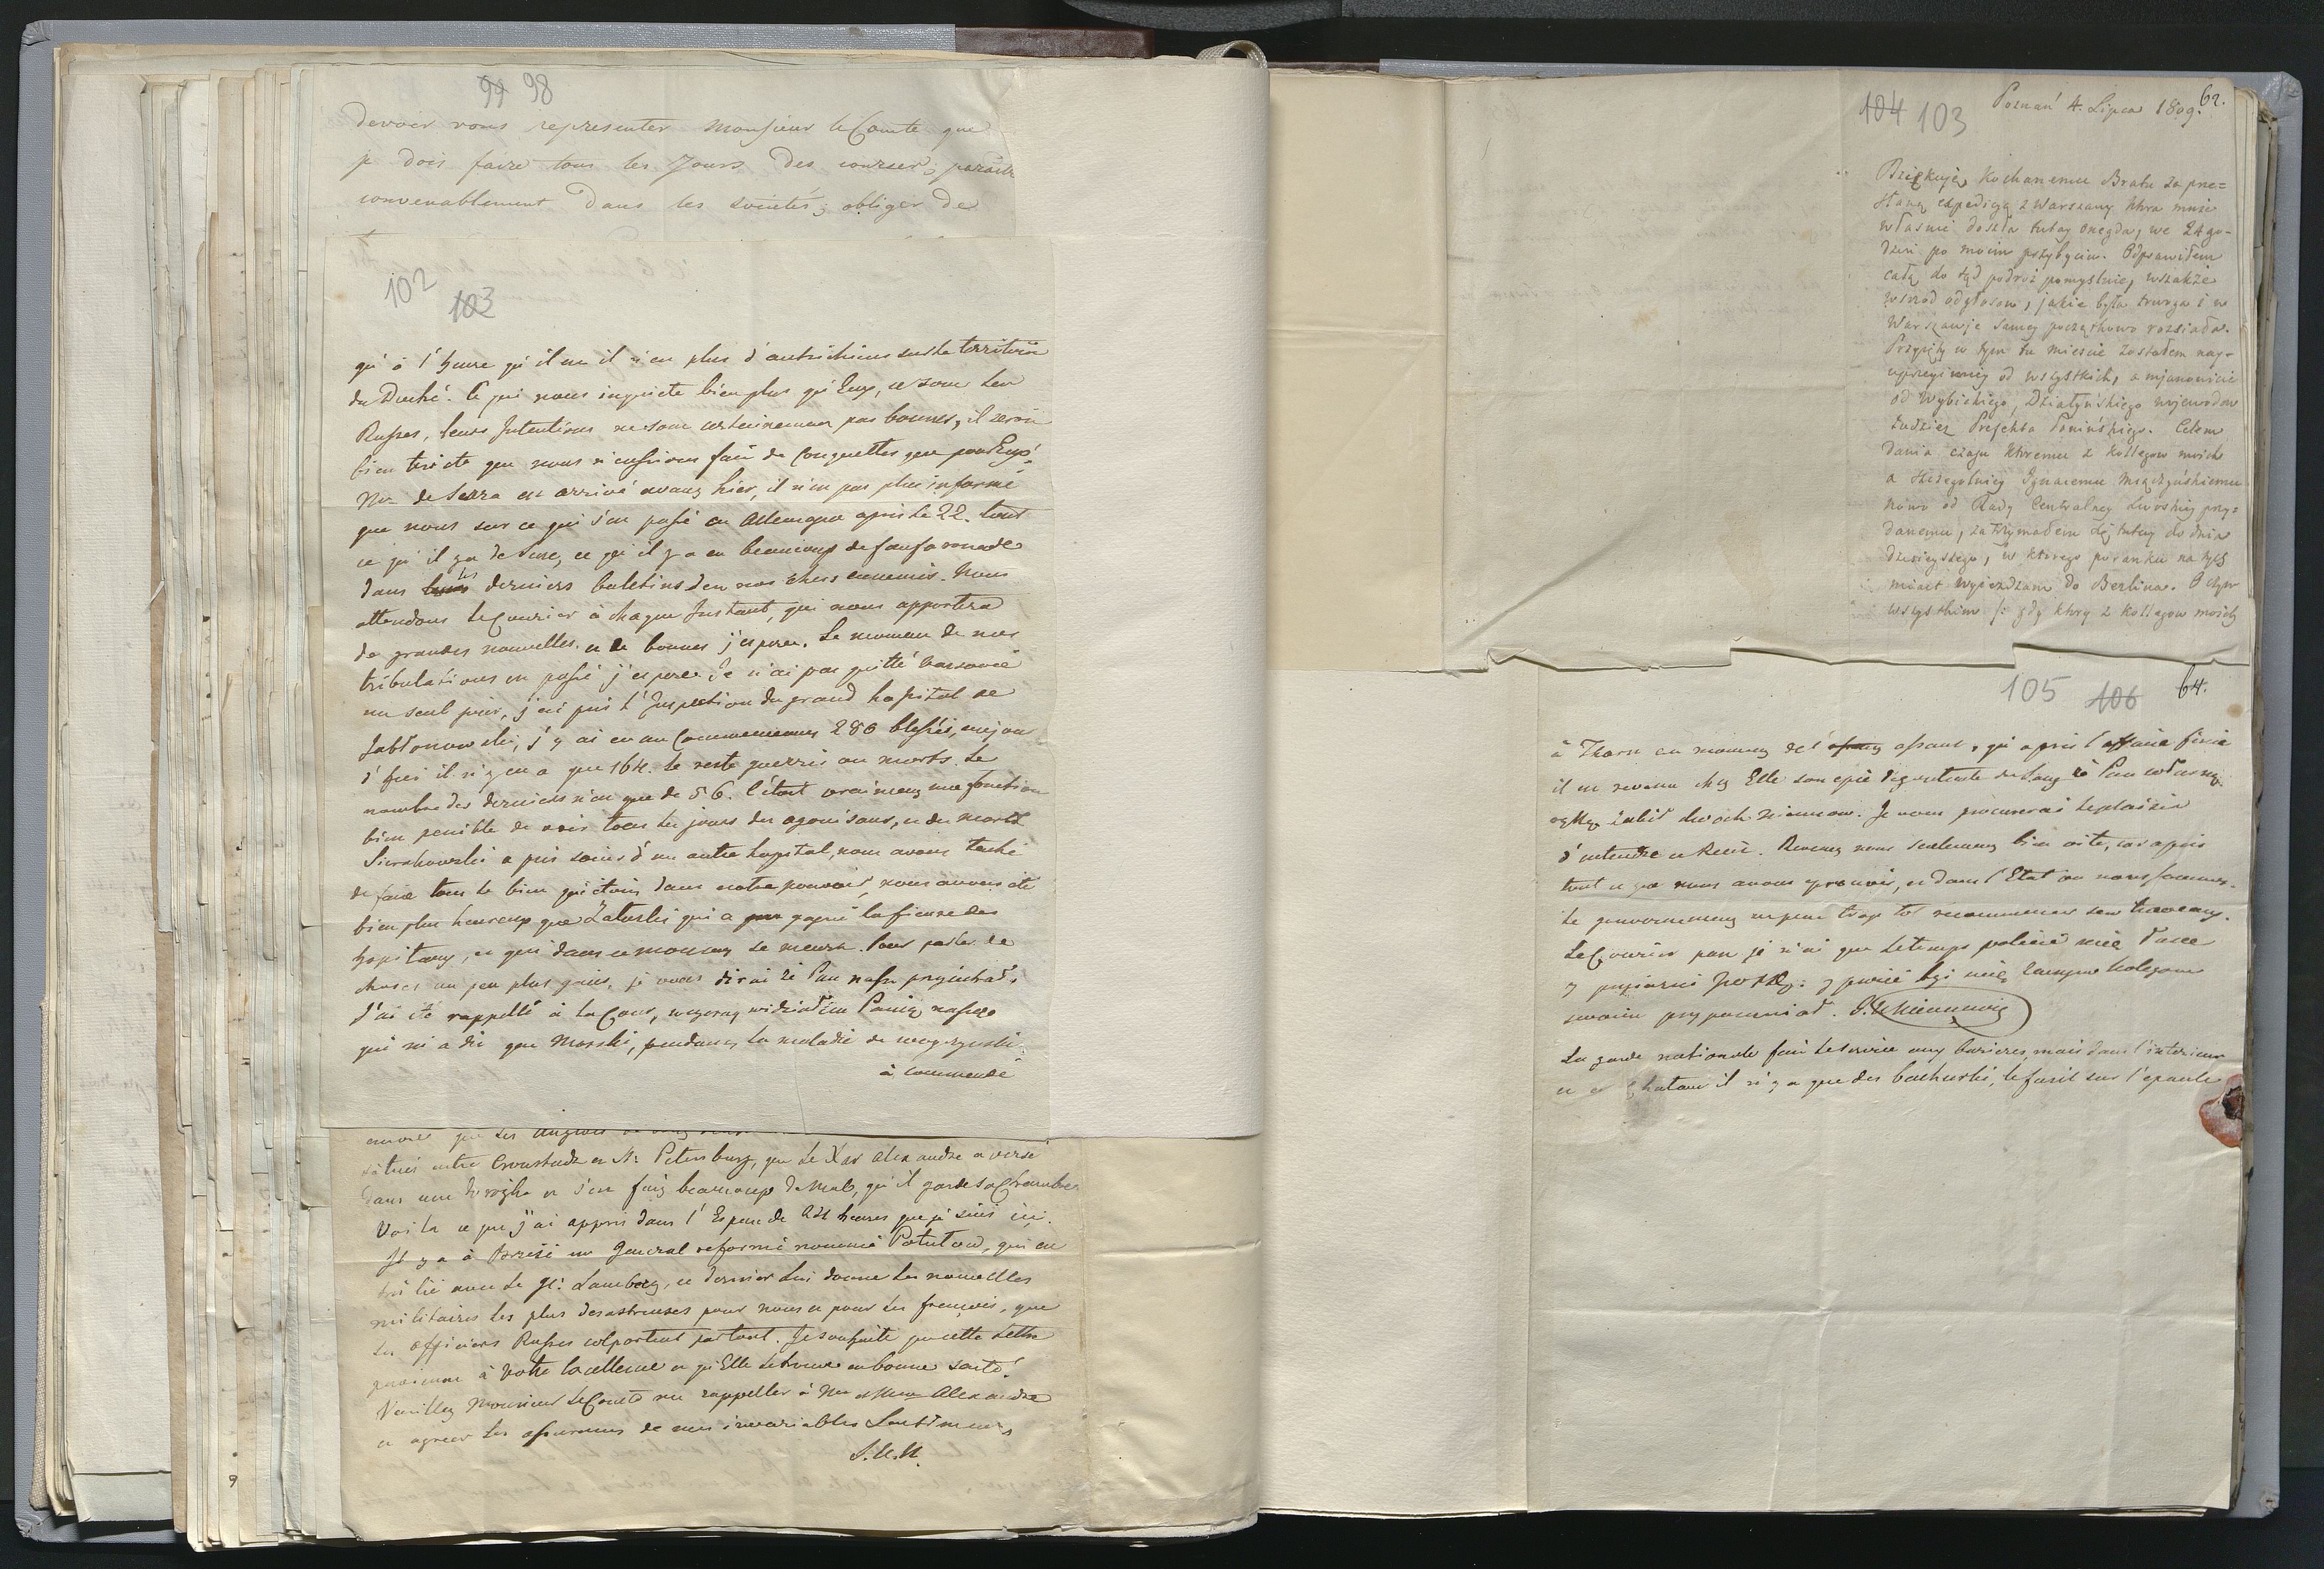 99 98
devoir vous representer Monsieur le Comte que
je dois faire tous les Jours des courses; paraitre
convenablement dans les societés; obliger de
102
103
qu'à l'heure qu'il est il n'en plus d'autrichiens sur le territoire
du Duché. Ce qui nous inquiete bien plus qu'Eux, ce sont les
Russes, leurs Intentions ne sont certainement pas bonnes, il seroit
bien triste que nous n'eussions fait de Conquettes que pour Eux!
Mr de Serra est arrivé avant hier, il n'est pas plus informé
que nous sur ce qui s'est passé en Allemagne après le 22. tout
ce qu'il y a de sure, ce qu'il y a eu beaucoup de fanfaronade
dans les derniers buletins den nos chers ennemis. Nous
attendons le Courier à chaque Instant, qui nous apportera
de grandes nouvelles, et de bonnes j'espere. Le moment de nos
tribulations est passé j'espere. Je n'ai pas quitté Varsovie
un seul jour, j'ai pris l'Inspection du grand hopital de
Jabłonowski, j'y ai eu au Commencement 280 blessés, aujour
d'hui il n'y en a que 164. le reste guerris ou morts. Le
nombre des derniers n'est que de 56. C'étoit vraiment une fonction
bien penible de voir tous les jours des agonisans, et des morts
Sierakowski a pris soins d'un autre hopital, nous avons taché
de faire tout le bien qui étoit dans notre pouvoir, nous avons été
bien plus heureux que Załuski qui a gagné la fievre des
hopitaux, et qui dans ce moment se meurt. Pour parler de
choses un peu plus gaies, je vous dirai że Pan nasz przyiechał,
J'ai été rappellé à la Cour, wczoray widziałem Panią naszę
qui m'a dit que Morski, pendant la maladie de
à commandé
situés entre Cronstadt et St. Petersburg, que le Xar Alexandre a versé
dans une et s'est fait beaucoup de mal, qu'il garde sa Chambre
Voila ce que j'ai appris dans l'Espace de 24 heures que je suis ici.
Il y a à Brześć un General reformé nommé Potutow, qui est
très lié avec le Gl. Lambert, ce dernier lui donne les nouvelles
militaires les plus desastreuses pour nous et pour les françois, que
les officiers Russes colportent partout. Je souhaite que cette Lettre
parvienne à Votre Excellence et qu'Elle la trouve en bonne santé!
Veuillez Monsieur le Comte me rappeller à Mr et Mme Alexandre
et agréer les assurances de mes invariables Sentimens
J.U.N.
9
104 103
62.
Poznań 4. Lipca 1809.
Dziękuję Kochanemu Bratu za prze=
słaną expedicyą z Warszawy która mnie
właśnie doszła tutay onegda, we 24 go-
dzin po moim przybyciu. Odprawiłem
całą do tąd podroż pomyślnie, wszakże
wsrzod odgłosow, jakie była trwoga i w
Warszawie samey początkowo rozsiała.
Przyięty w tym tu miescie zostałem nay-
uprzeymiey od wszystkich, a mianowicie
od Wybickiego, Działyńskiego wojewodow
tudzież Prefekta Ponińskiego. Celem
dania czasu ktoremu z kollegow moich
a szczegolniey Ignacemu Miączyńskiemu
nowo od Rady Centralney Lwoskiey przy=
danemu, zatrzymałem się tutay do dnia
dzisieyszego, w ktorego poranku na tych
miast wyieżdzam do Berlina. O czym
wszystkim /: gdy ktory z kollegow moich
105 106 64.
à Thorn au moment de l'assaut, qui après l'affaire finie
il est revenu chez Elle son epée degoutante du Sang że Pan własną
ręką zabił dwoch Niemcow. Je vous procurerai le plaisir
d'entendre ce Recit. Revenez nous seulement bien vite, car après
tout ce que nous avons eprouvés, et dans l'Etat où nous sommes.
le gouvernement ne peut trop tôt recommencer ses travaux.
Le Courier part je n'ai que le temps polecić mię Łasce
y przyiazni JWWPy: y prosić byś mię Zacnym kolegom
swoim przypomniał. J.U. Niemcewicz
La garde nationale fait le service aux barieres, mais dans l'interieur
et au Chateau il n'y a que des bachurki, le fusil sur l'epaule